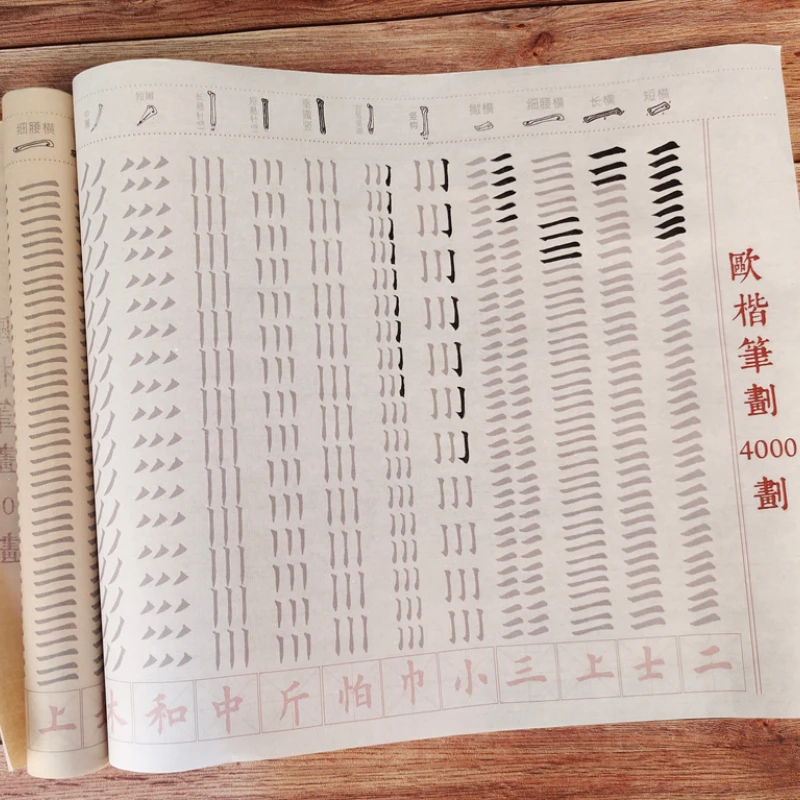 歐楷筆劃4000劃
短横
长横
细腰横
撇横
竖钩
垂露竖
短悬针竖
长悬针竖
短撇
二
士
上
三
小
巾
怕
斤
中
和
细腰横
上